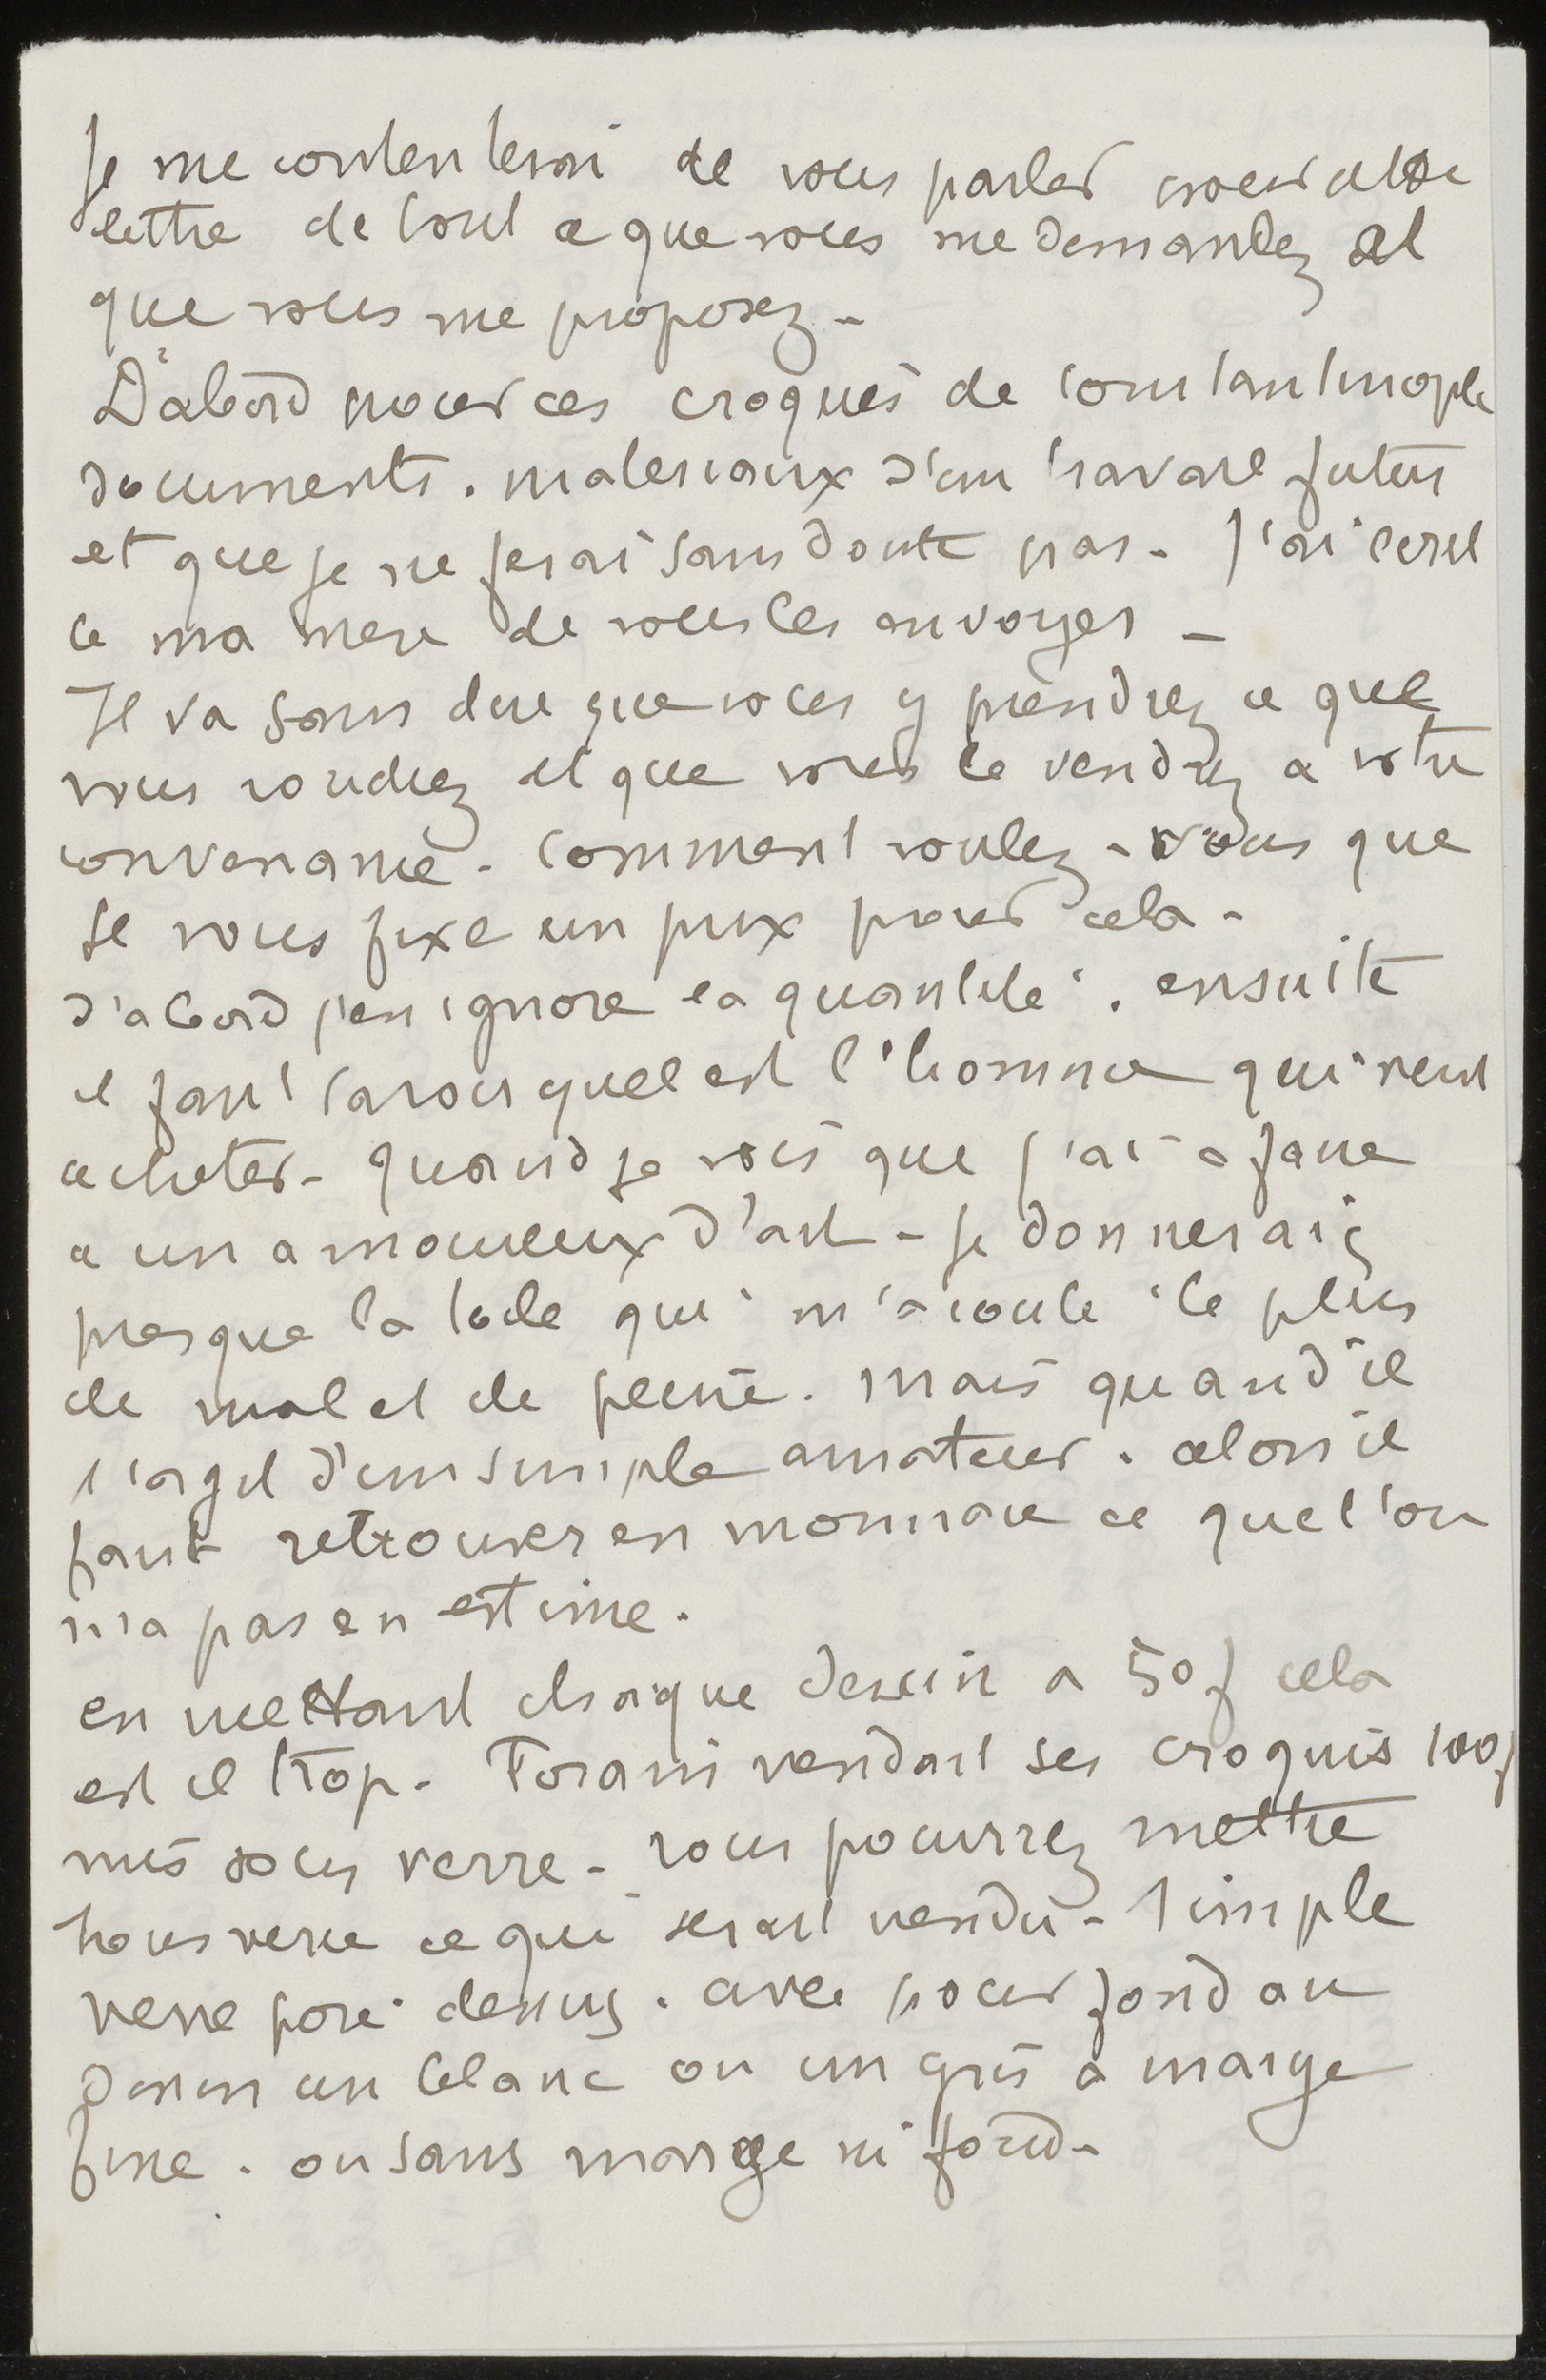 Je me contenterai de vous parler pour cette
lettre de tout ce que vous me demandez et
que vous me proposez -
D'abord pour ces croquis de Constantinople
documents. materiaux d'un travail futur
et que je ne ferai sans doute pas - J'ai ecrit
a ma mere de vous les envoyer -
Il va sans dire que vous y prendrez ce que
vous voudrez et que vous le vendrez a votre
convenance - Comment voulez-vous que
je vous fixe un prix pour cela -
D'abord j'en ignore la quantité. ensuite
il faut savoir quel est l'homme qui veut
acheter - quand je vois que j'ai a faire
a un amoureux d'art - je donnerais
presque la toile qui m'a couté le plus
de mal et de peine. mais quand il
s'agit d'un simple amateur. alors il
faut retrouver en monnaie ce que l'on
n'a pas en estime.
en mettant chaque dessin a 50 f cela
est il trop - Forain vendait ses croquis 100f
mis sous verre - vous pourrez mettre
sous verre ce qui serait vendu - simple
verre posé dessus. avec pour fond au
dessin un blanc ou un gris a marge
fine. ou sans marge ni fond -